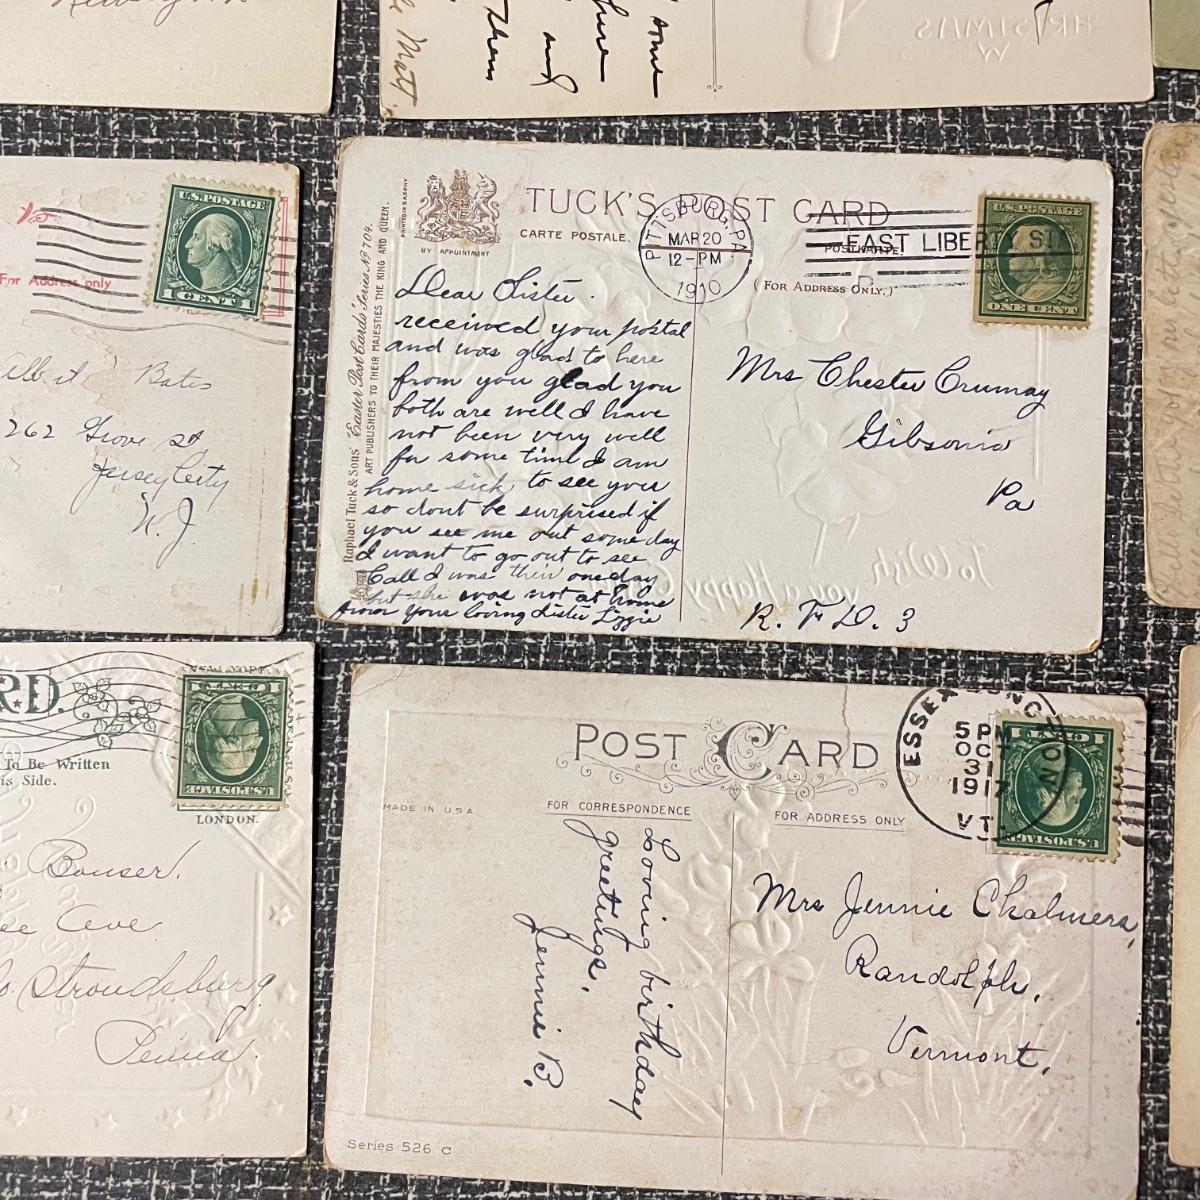 some
and
Them
Matt.
U.S. POSTAGE
1 CENT 1
For Address only
Bates
262 Grove St
Jersey City
N. J.
PRINTED IN SAXONY
BY APPOINTMENT
TUCK'S POST CARD
CARTE POSTALE.
POSTKARTE.
( For Address Only. )
PITTSBURG, PA.
MAR 20
12-PM
1910
EAST LIBERTY STA
U.S. POSTAGE
ONE CENT
Raphael Tuck & Sons' "Easter" Post Cards Series No 704.
ART PUBLISHERS TO THEIR MAJESTIES THE KING AND QUEEN.
Dear Sister.
received your postal
and was glad to here
from you glad you
both are well I have
not been very well
for some time I am
home sick, to see you
so dont be surprised if
you see me out some day
I want to go out to see
Call I was their one day
but she was not at home
from your loving sister Lizzie
Mrs Chester Crumay
Gibsonia
Pa
R. F. D. 3
To Wish
you a Happy
R.D.
To Be Written
is Side.
NEW YORK
U.S. POSTAGE
1 CENT 1
LONDON.
Bonser.
Ave.
Stroudsburg
Penna.
POST CARD
MADE IN U.S.A
FOR CORRESPONDENCE
FOR ADDRESS ONLY
ESSEX JUNCTION
5 PM
OCT
31
1917
VT.
U.S. POSTAGE
Loving birthday
greetings.
Jennie B.
Mrs Jennie Chalmers,
Randolph.
Vermont.
Series 526 C